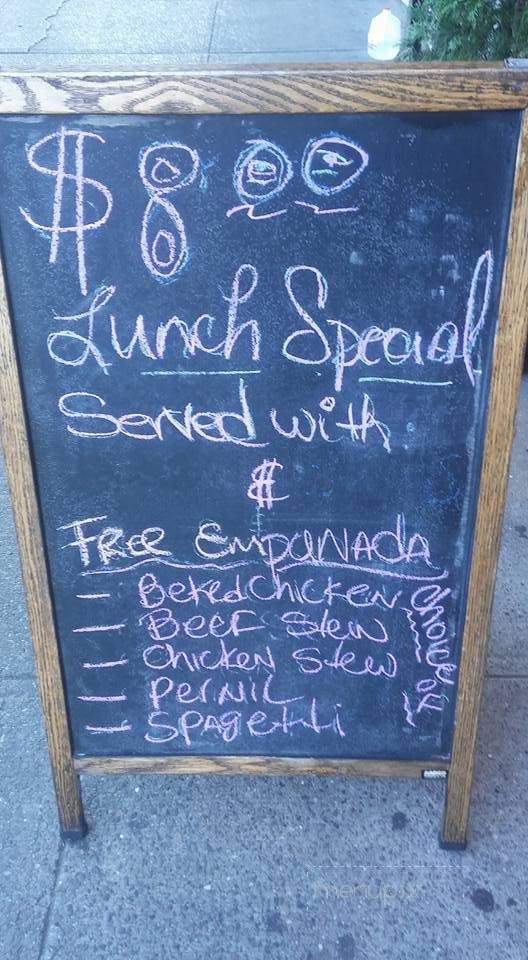 $8.00
Lunch Special
Served with
&
Free Empanada
- Beked Chicken
- Beef Stew
- Chicken Stew
- Pernil
- Spagetti
Choice of
menupix